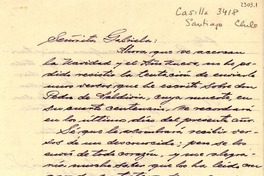 2303.1
Casilla 3418
Santiago Chile
Señorita Gabriela:
Ahora, que se acercan
la Navidad y el Año Nuevo, no he
podido resistir la tentación de enviarle
unos versos, que he escrito sobre don
Pedro de Valdivia, cuya muerte en
su cuarto centenario, se recordará
en los últimos días del presente año.
Sé que la asombrará recibir ver-
sos de un desconocido; pero se los
envío de todo corazón, y me alegra-
ría mucho saber que los ha leído con